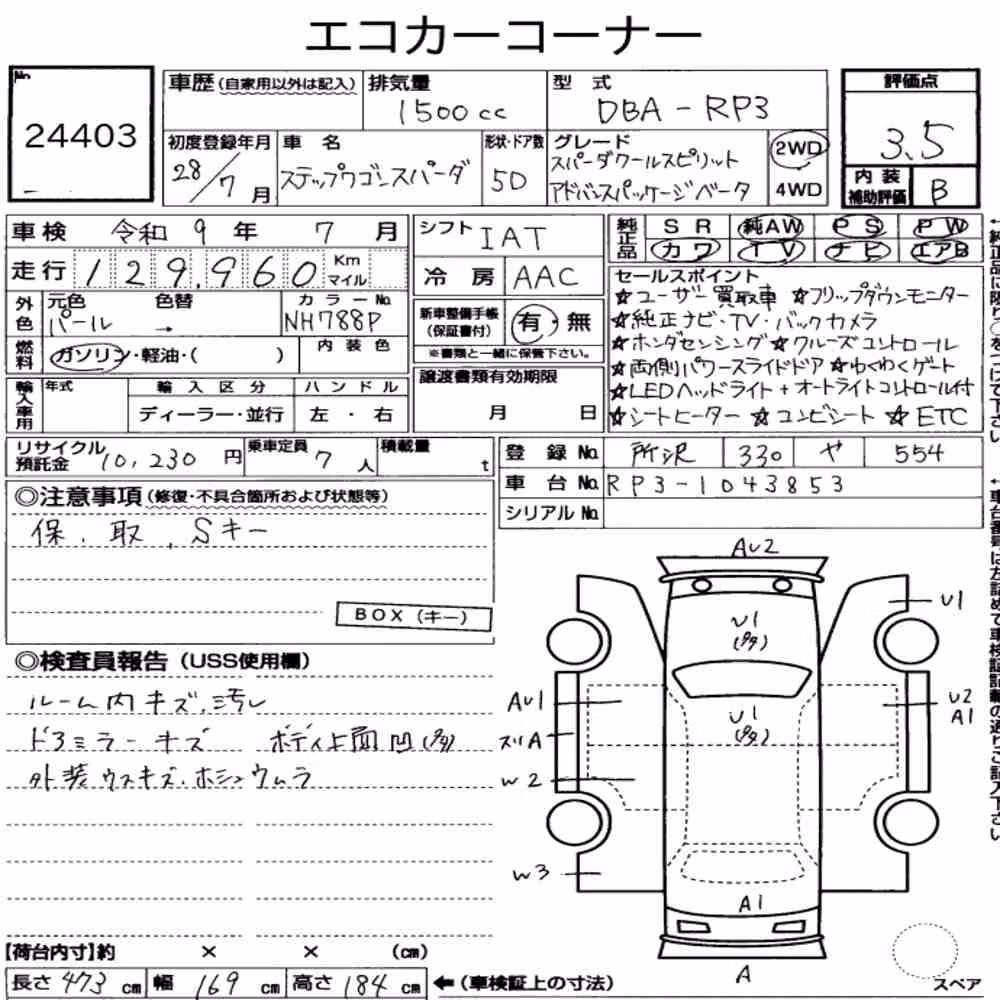 エコカーコーナー
No
24403
車歴(自家用以外は記入)
排気量
1500cc
型 式
DBA-RP3
評価点
3.5
内装
補助評価
B
初度登録年月
28/7月
車 名
ステップワゴンスパーダ
形状・ドア数
5D
グレード
スパーダクールスピリット
アドバンスパッケージベータ
2WD
4WD
車検 令和 9 年 7 月
走行 129,960 Km
マイル
外色
元色 色替
パール →
カラーNo.
NH788P
燃料
ガソリン・軽油・( )
内 装 色
輸入車用
年式
輸 入 区 分
ディーラー・並行
ハ ン ド ル
左 ・ 右
シフト IAT
冷 房 AAC
新車整備手帳
(保証書付)
有・無
※書類と一緒に保管下さい。
譲渡書類有効期限
月 日
純正品
SR 純AW PS PW
カワ TV ナビ エアB
セールスポイント
☆ユーザー買取車 ☆フリップダウンモニター
☆純正ナビ・TV・バックカメラ
☆ホンダセンシング☆クルーズコントロール
☆両側パワースライドドア☆わくわくゲート
☆LEDヘッドライト+オートライトコントロール付
☆シートヒーター ☆コンビシート ☆ETC
リサイクル
預託金
10,230 円
乗車定員
7 人
積載量
t
登 録 No. 所沢 330 や 554
車 台 No. RP3-1043853
シリアル No.
◎注意事項(修復・不具合箇所および状態等)
保.取.Sキー
BOX(キー)
◎検査員報告(USS使用欄)
ルーム内キズ.汚レ
ドアミラーキズ ボディ上面凹(多)
外装ウスキズ.ホシュウムラ
AU2
U1
U1
(多)
AU1
U1
(多)
U2
A1
スリA
W2
W3
A1
A
スペア
【荷台内寸】約 × × (cm)
長さ 473 cm 幅 169 cm 高さ 184 cm ←(車検証上の寸法)